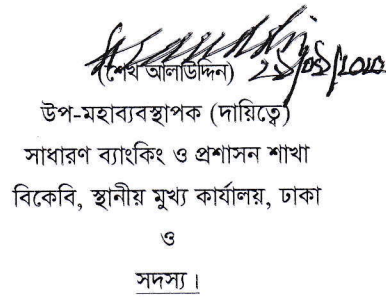 (শেখ আলাউদ্দিন)
উপ-মহাব্যবস্থাপক (দায়িত্বে)
সাধারণ ব্যাংকিং ও প্রশাসন শাখা
বিকেবি, স্থানীয় মুখ্য কার্যালয়, ঢাকা
ও
সদস্য।